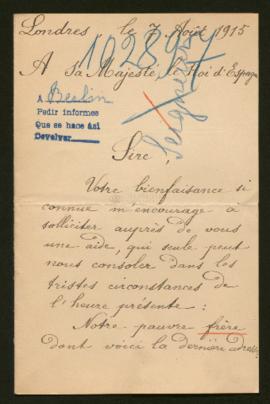 Londres le 7 Août 1915
A Sa Majesté, le Roi d'Espagne
A Berlin
Pedir informes
Que se hace ási
Devolver
Sire,
Votre bienfaisance si
connue m'encourage à
solliciter auprès de vous
une aide, qui seule peut
nous consoler dans les
tristes circonstances de
l'heure présente :
Notre pauvre frère
dont voici la dernière adresse